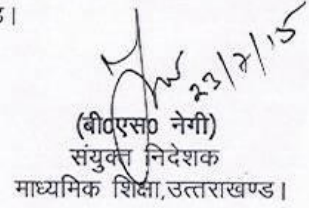 23/7/15
(बी0एस0 नेगी)
संयुक्त निदेशक
माध्यमिक शिक्षा,उत्तराखण्ड।